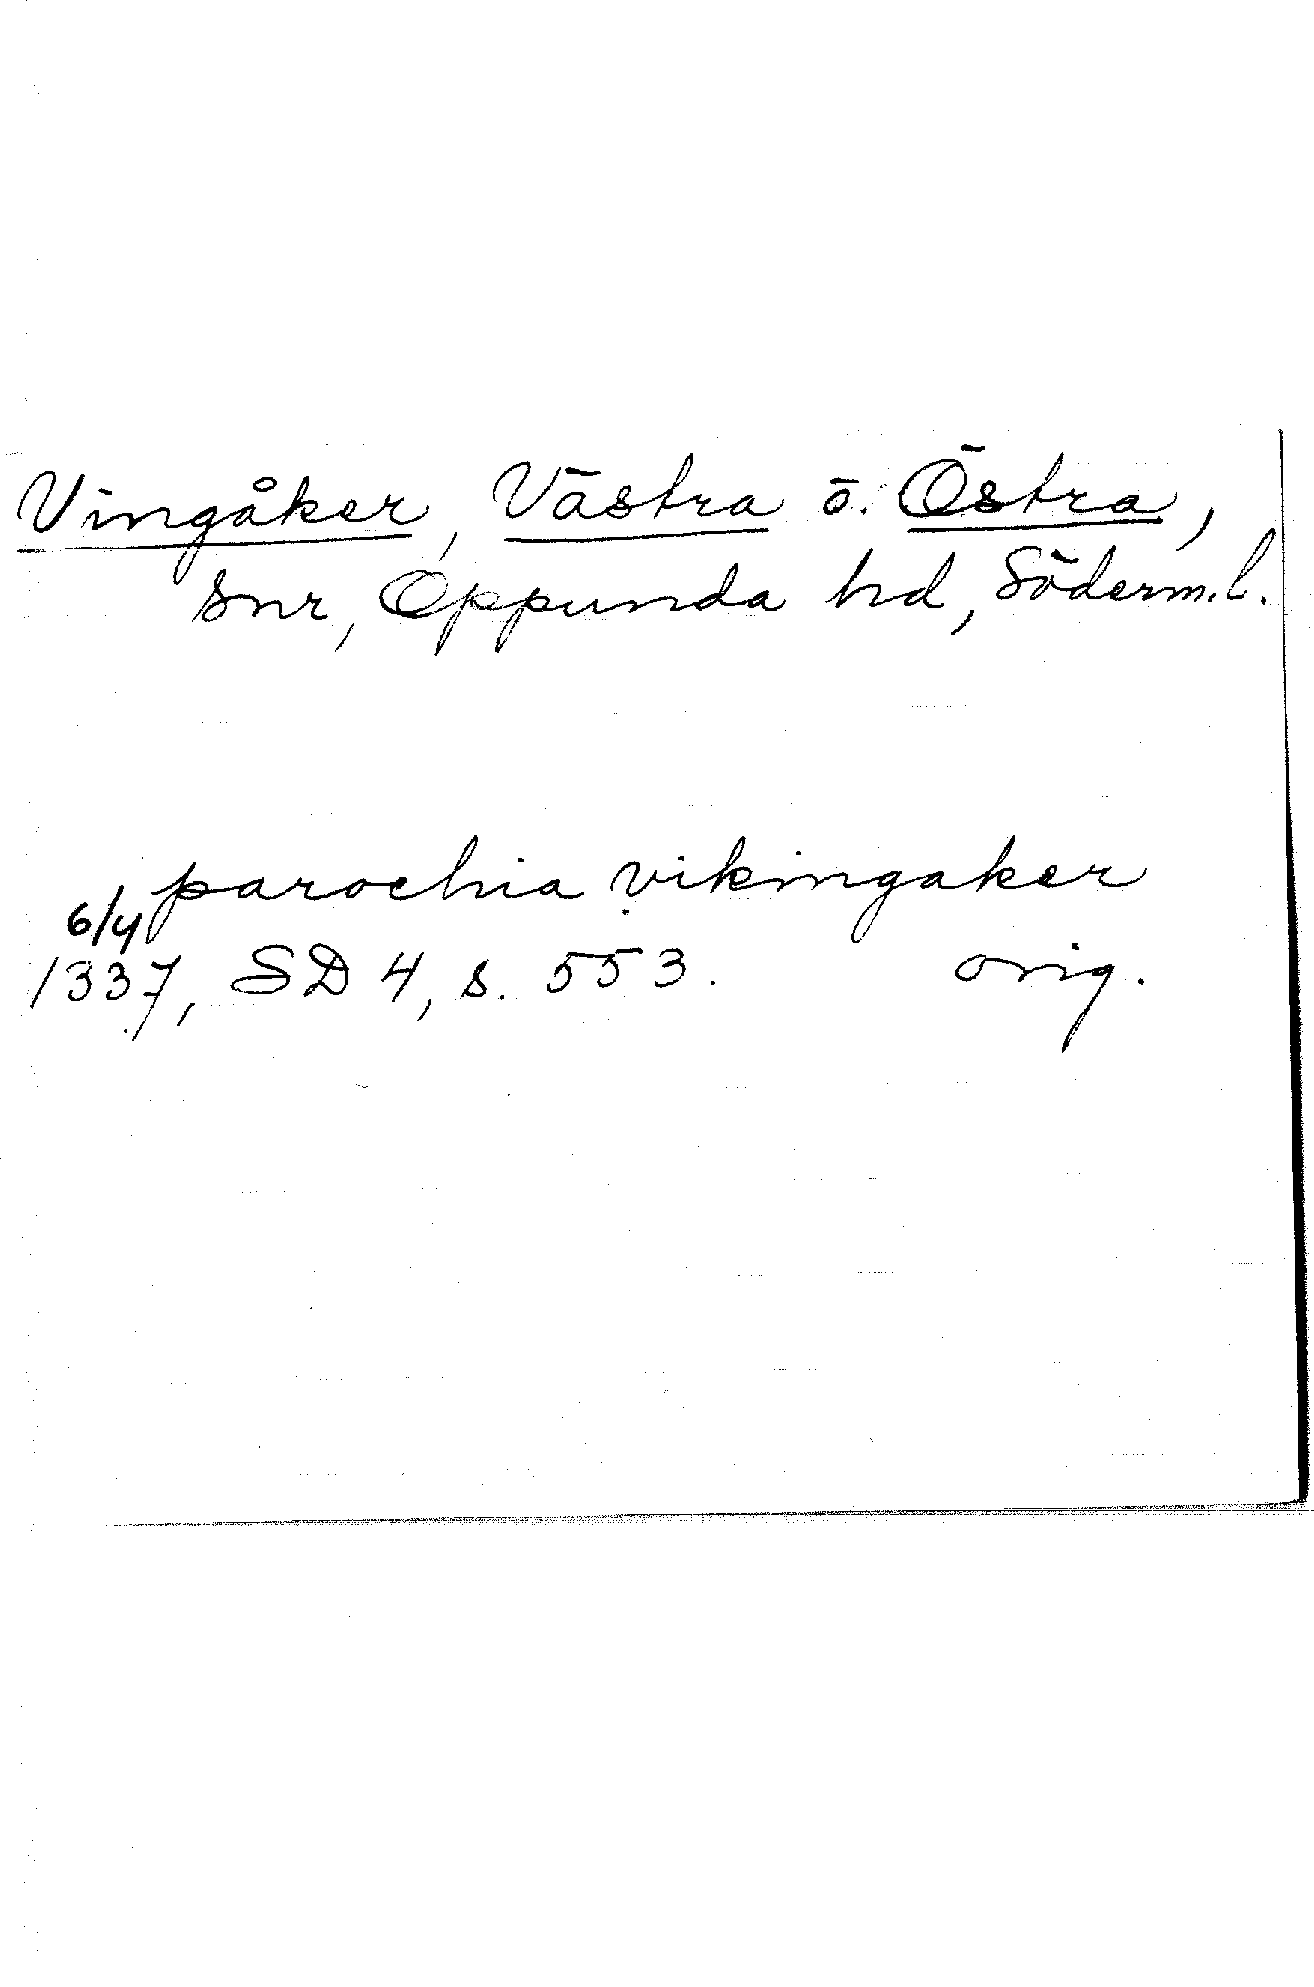 Vingåker, Västra o. Östra,
snr, Oppunda hd, Söderm.l.
parochia vikingaker
6/4
1337, SD 4, s. 553. orig.